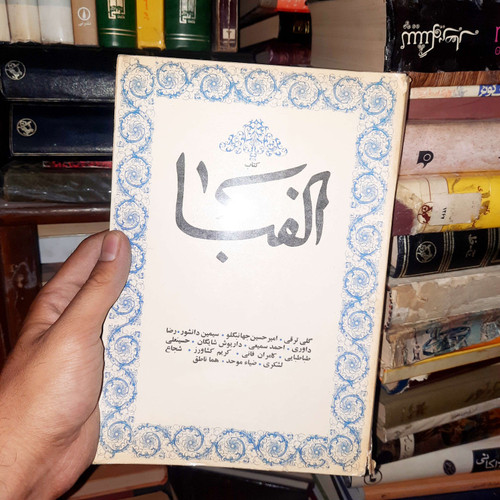 کتاب
الفبا
گلی ترقی . امیرحسین جهانبگلو . سیمین دانشور . رضا
داوری . احمد سمیعی . داریوش شایگان . حسینعلی
طباطبایی . کامران فانی . کریم کشاورز . شجاع
لشکری . ضیاء موحد . هما ناطق